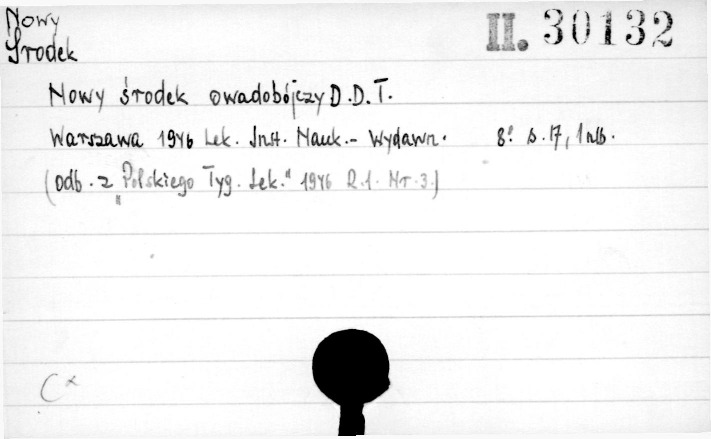 Nowy
Środek
II. 30132
Nowy środek owadobójczy D.D.T.
Warszawa 1946 Lek. Inst. Nauk.- Wydawn. 8° s. 17, 1 nlb.
(odb. z „Polskiego Tyg. Lek." 1946 R.1. Nr. 3.)
C x